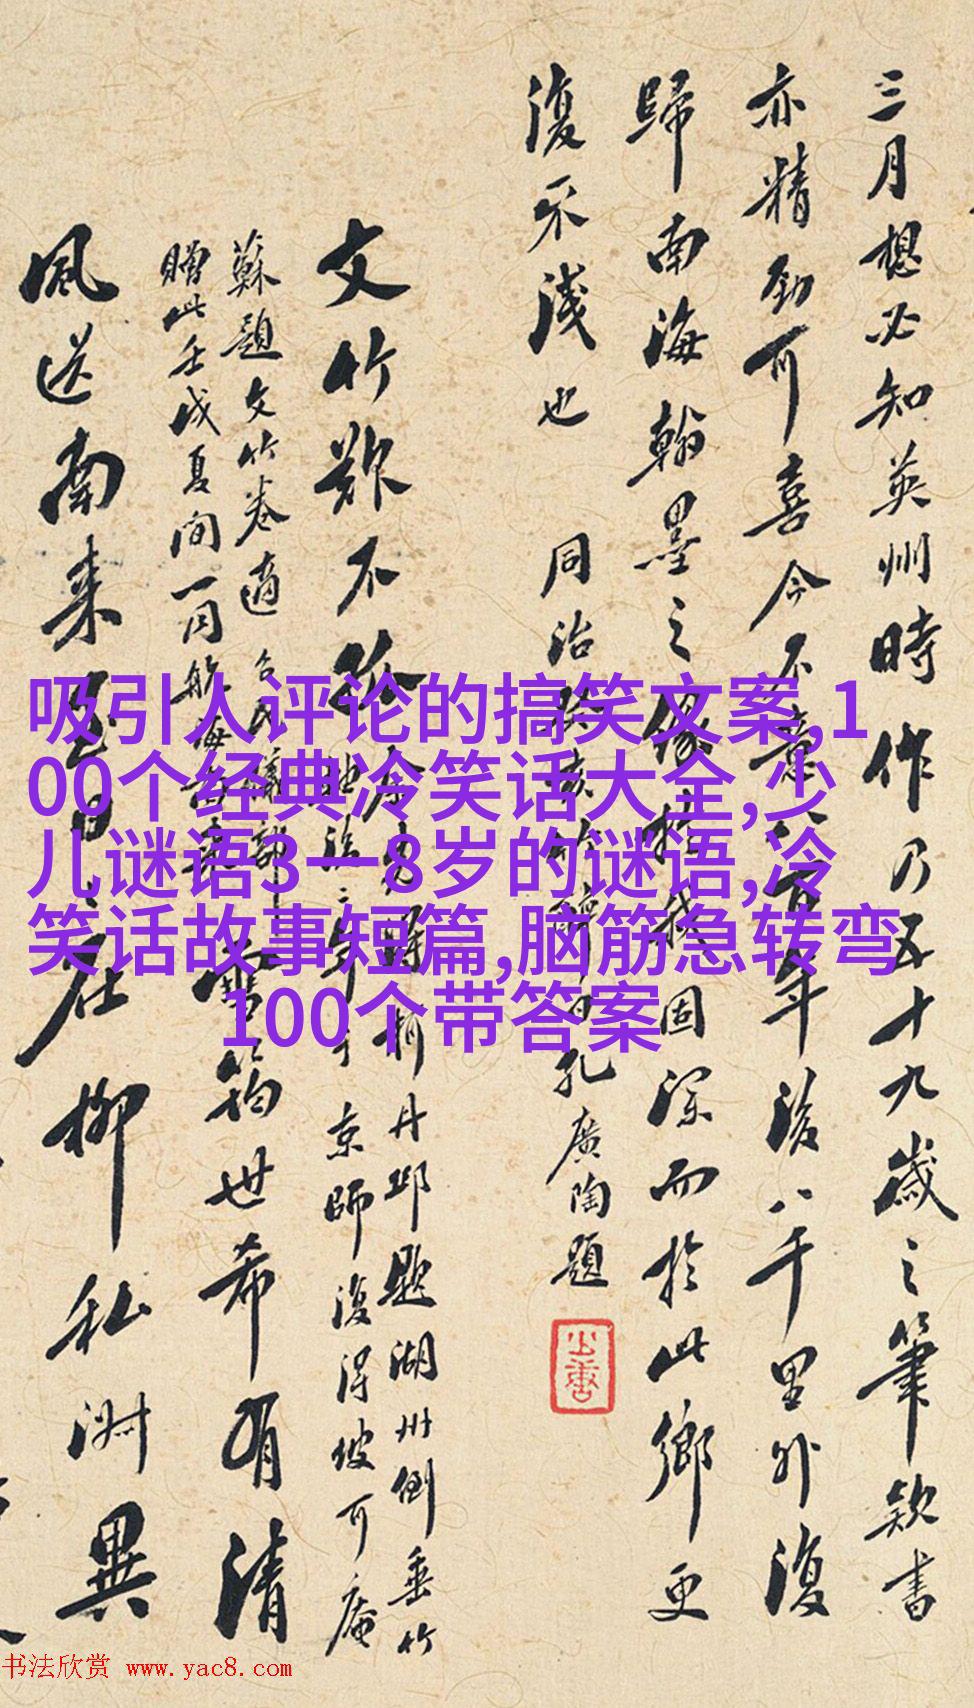 三月想必知英州時作乃五十九歲之筆款書
亦精勁可喜今不意八百年後八千里外復
歸南海翰墨之緣相投固深而於此鄉更
復不淺也 同治
孔廣陶題
文竹歎不孤
蘇題文竹卷適
贈此壬戌夏間一同航海
丹邱題湖州倒垂竹
京師復得坡可庵
舊筠世希有清
風送南来
在柳私淑異
吸引人评论的搞笑文案,1
00个经典冷笑话大全,少
儿谜语3一8岁的谜语,冷
笑话故事短篇,脑筋急转弯
100个带答案
书法欣赏 www.yac8.com